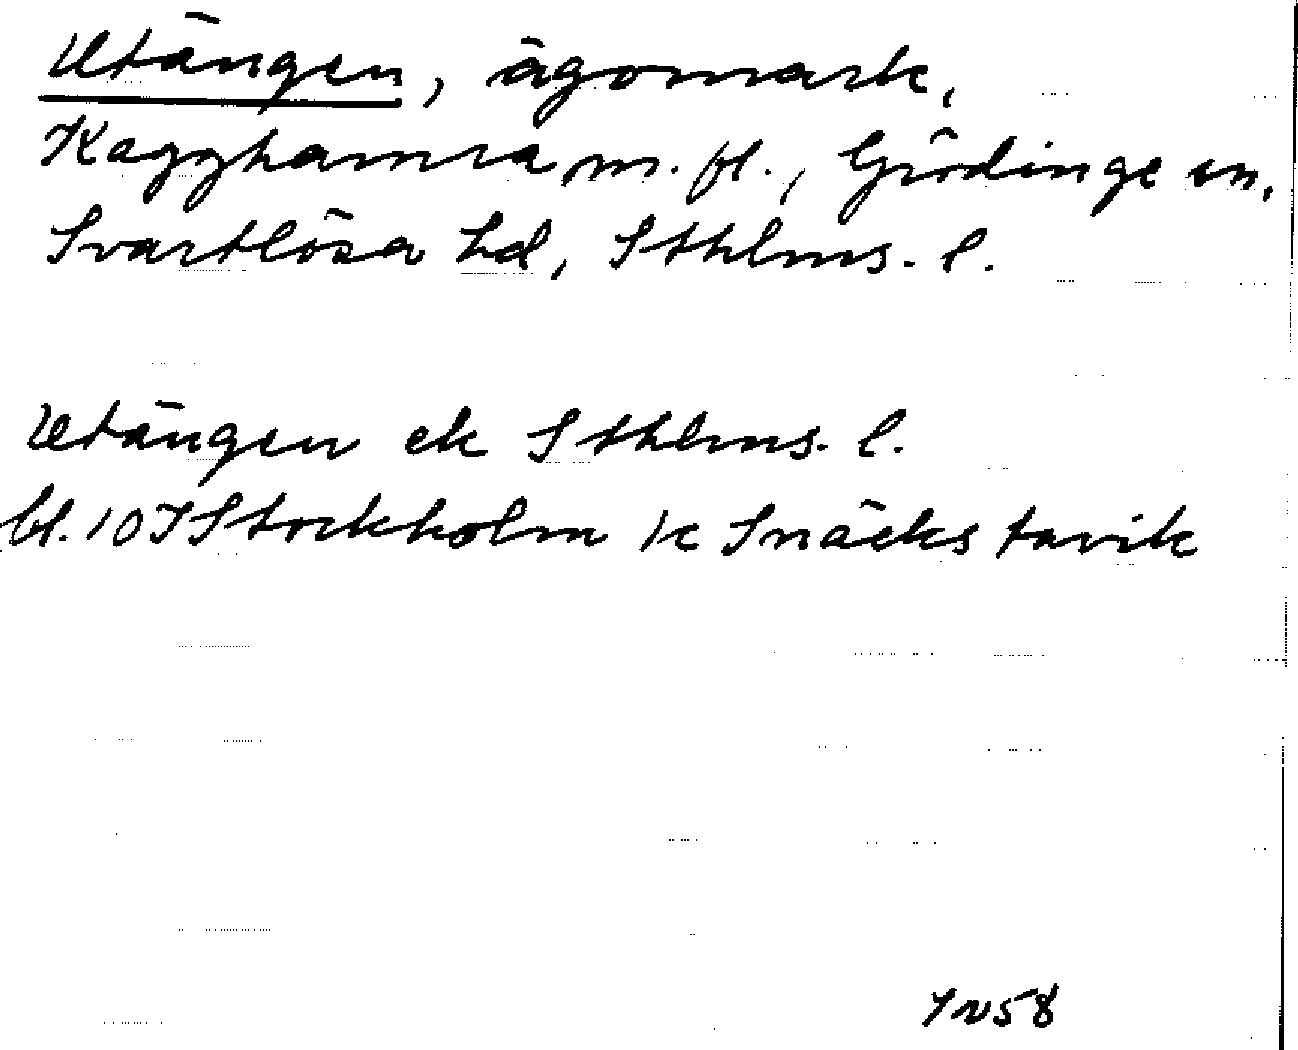 Utängen, ägomark,
Kagghamra m. fl., Grödinge sn,
Svartlösa hd, Sthlms. l.
Utängen ek Sthlms. l.
bl. 10 I Stockholm 1c Snäckstavik
IV58